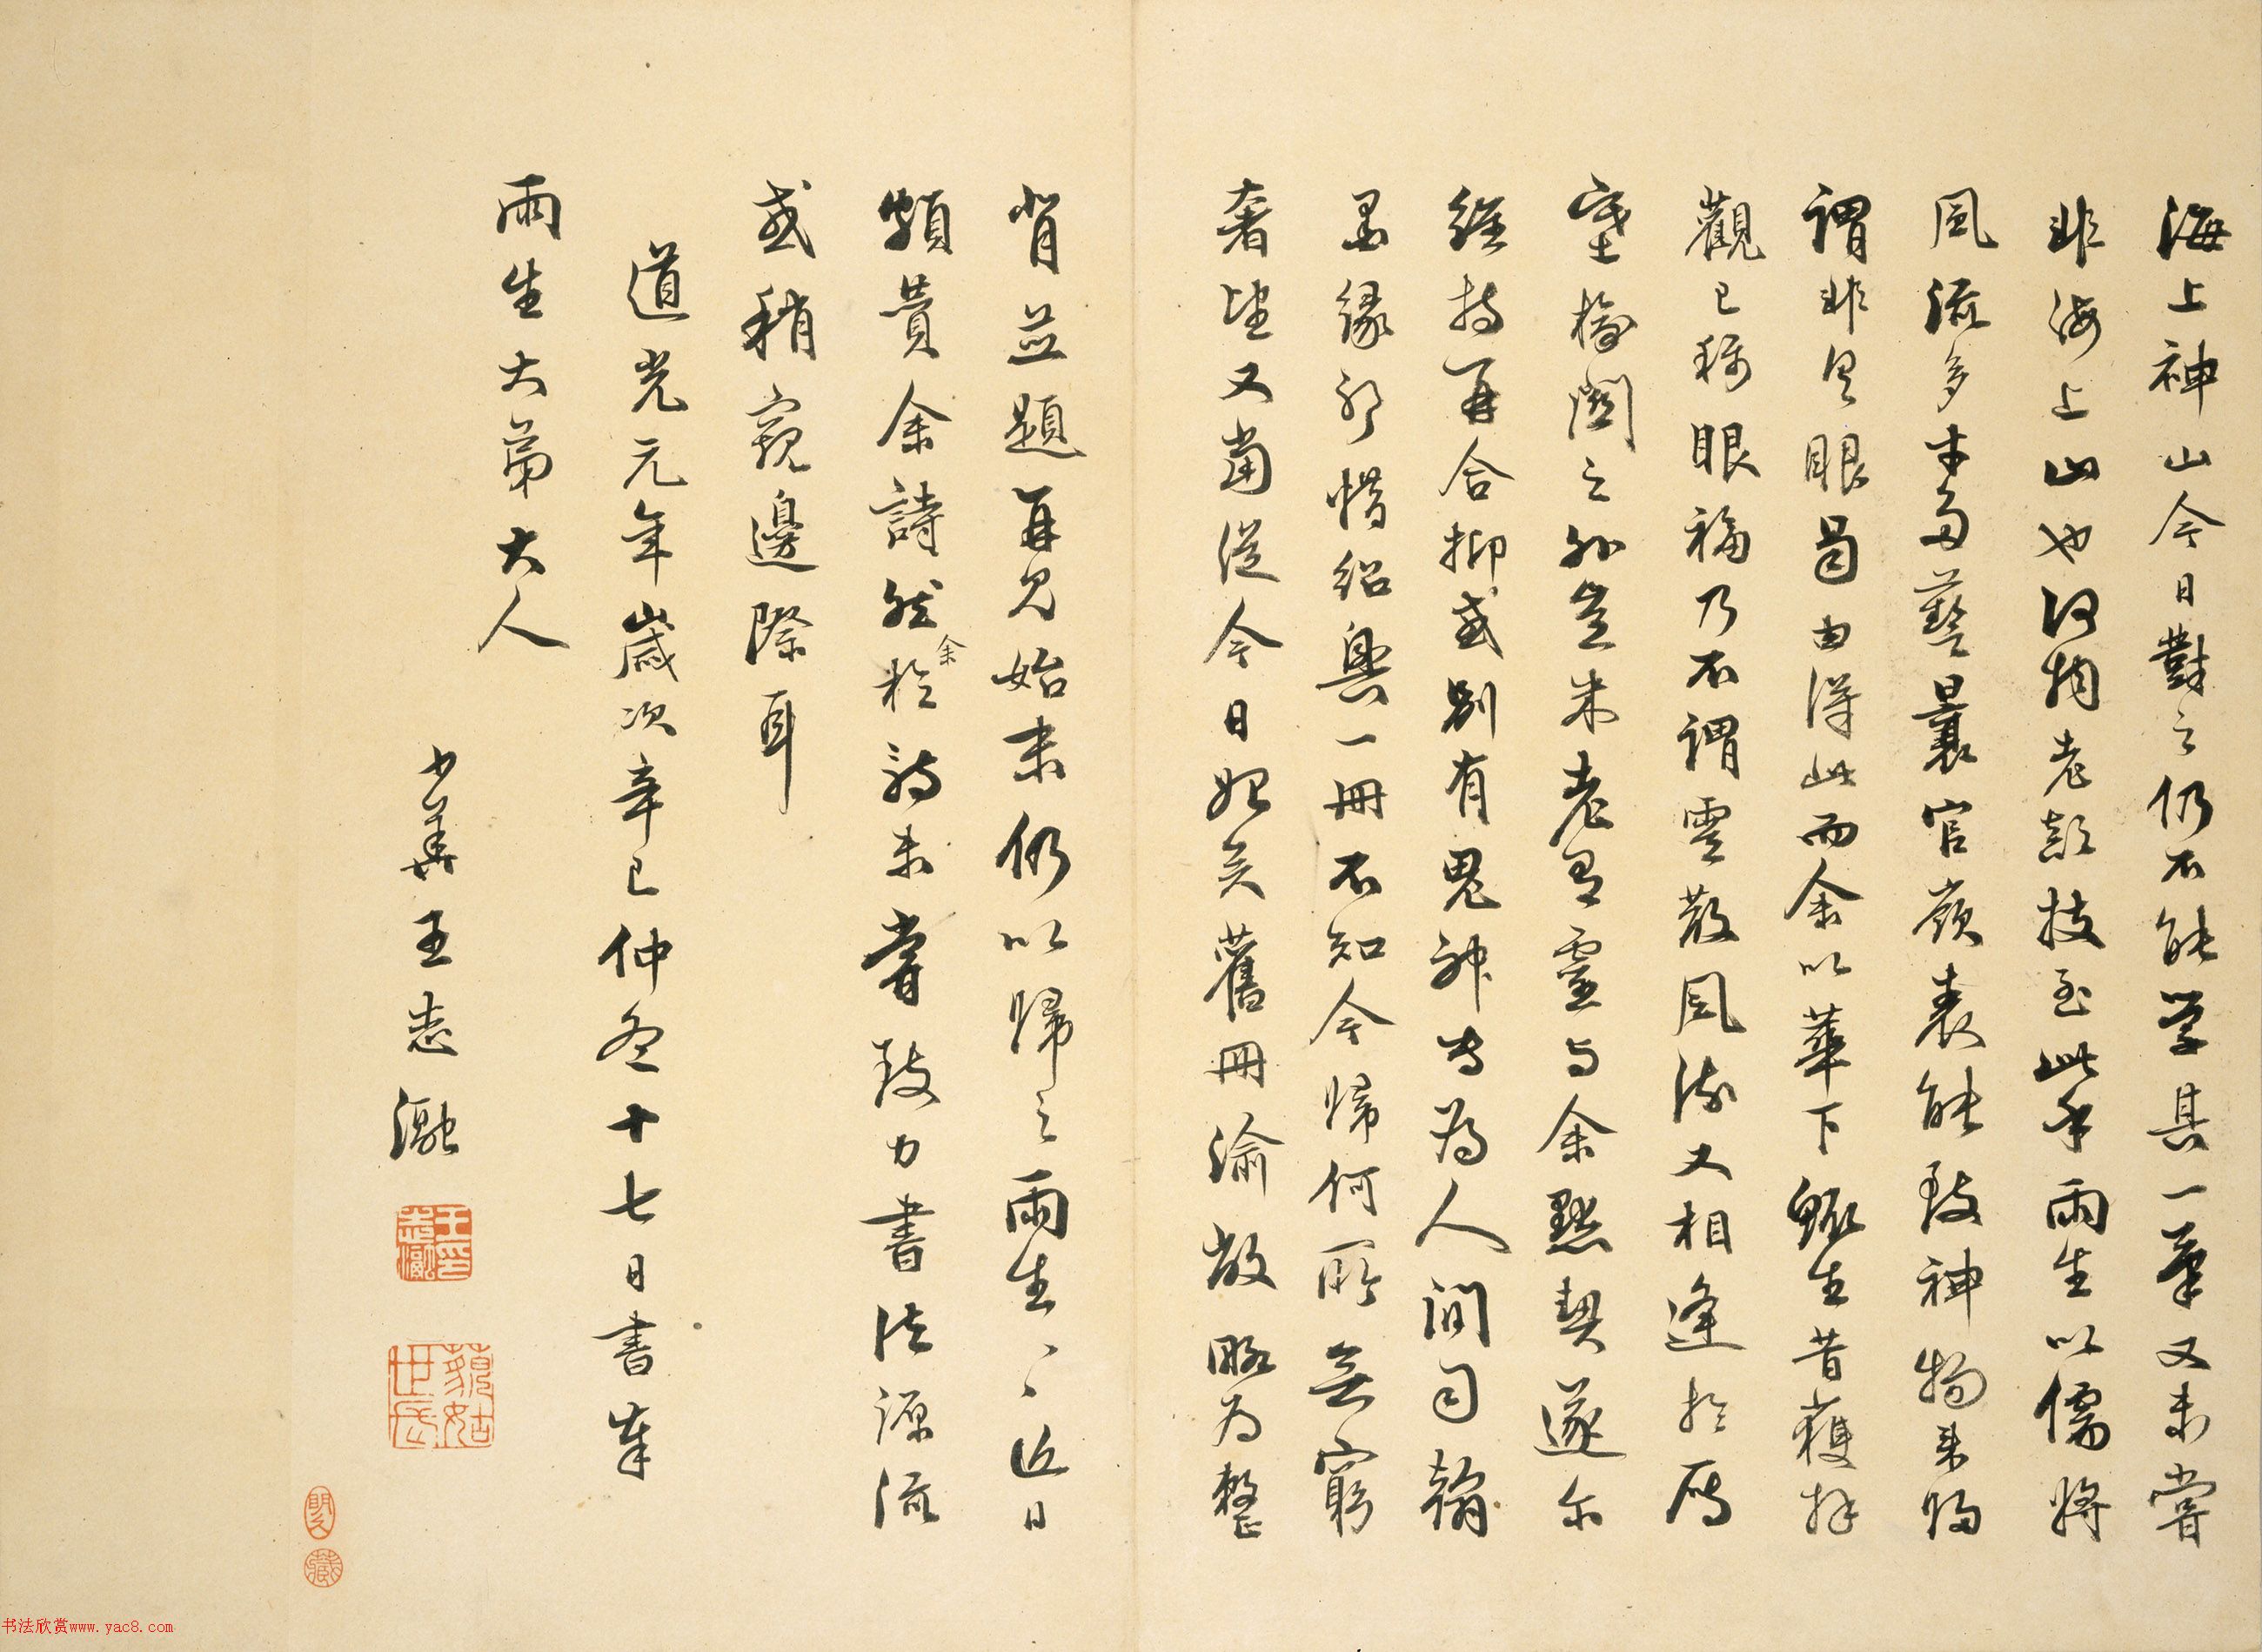 海上神山今日對之仍不能學其一筆又未嘗
非海上山也何物老顛技至此乎雨生以儒將
風流多才多藝曩官嶺表能致神物來歸
謂非具眼曷由得此而余以華下鯫生昔獲拜
觀已稱眼福乃不謂雲散風流又相逢於雁
塞榆關之外豈米老有靈與余默契遂爾
維持再合抑或別有鬼神專為人間司翰
墨緣耶惜紹興一冊不知今歸何所無窮
奢望又當從今日始矣舊冊渝敝略為整
背並題再見始末仍以歸之雨生雨生近日
頗賞余詩然於詩未嘗致力書法源流
余
或稍窺邊際耳
道光元年歲次辛巳仲冬十七日書奉
雨生大弟大人
少華王志瀜
王志瀜印
藐姑世民
書法欣赏www.yac8.com